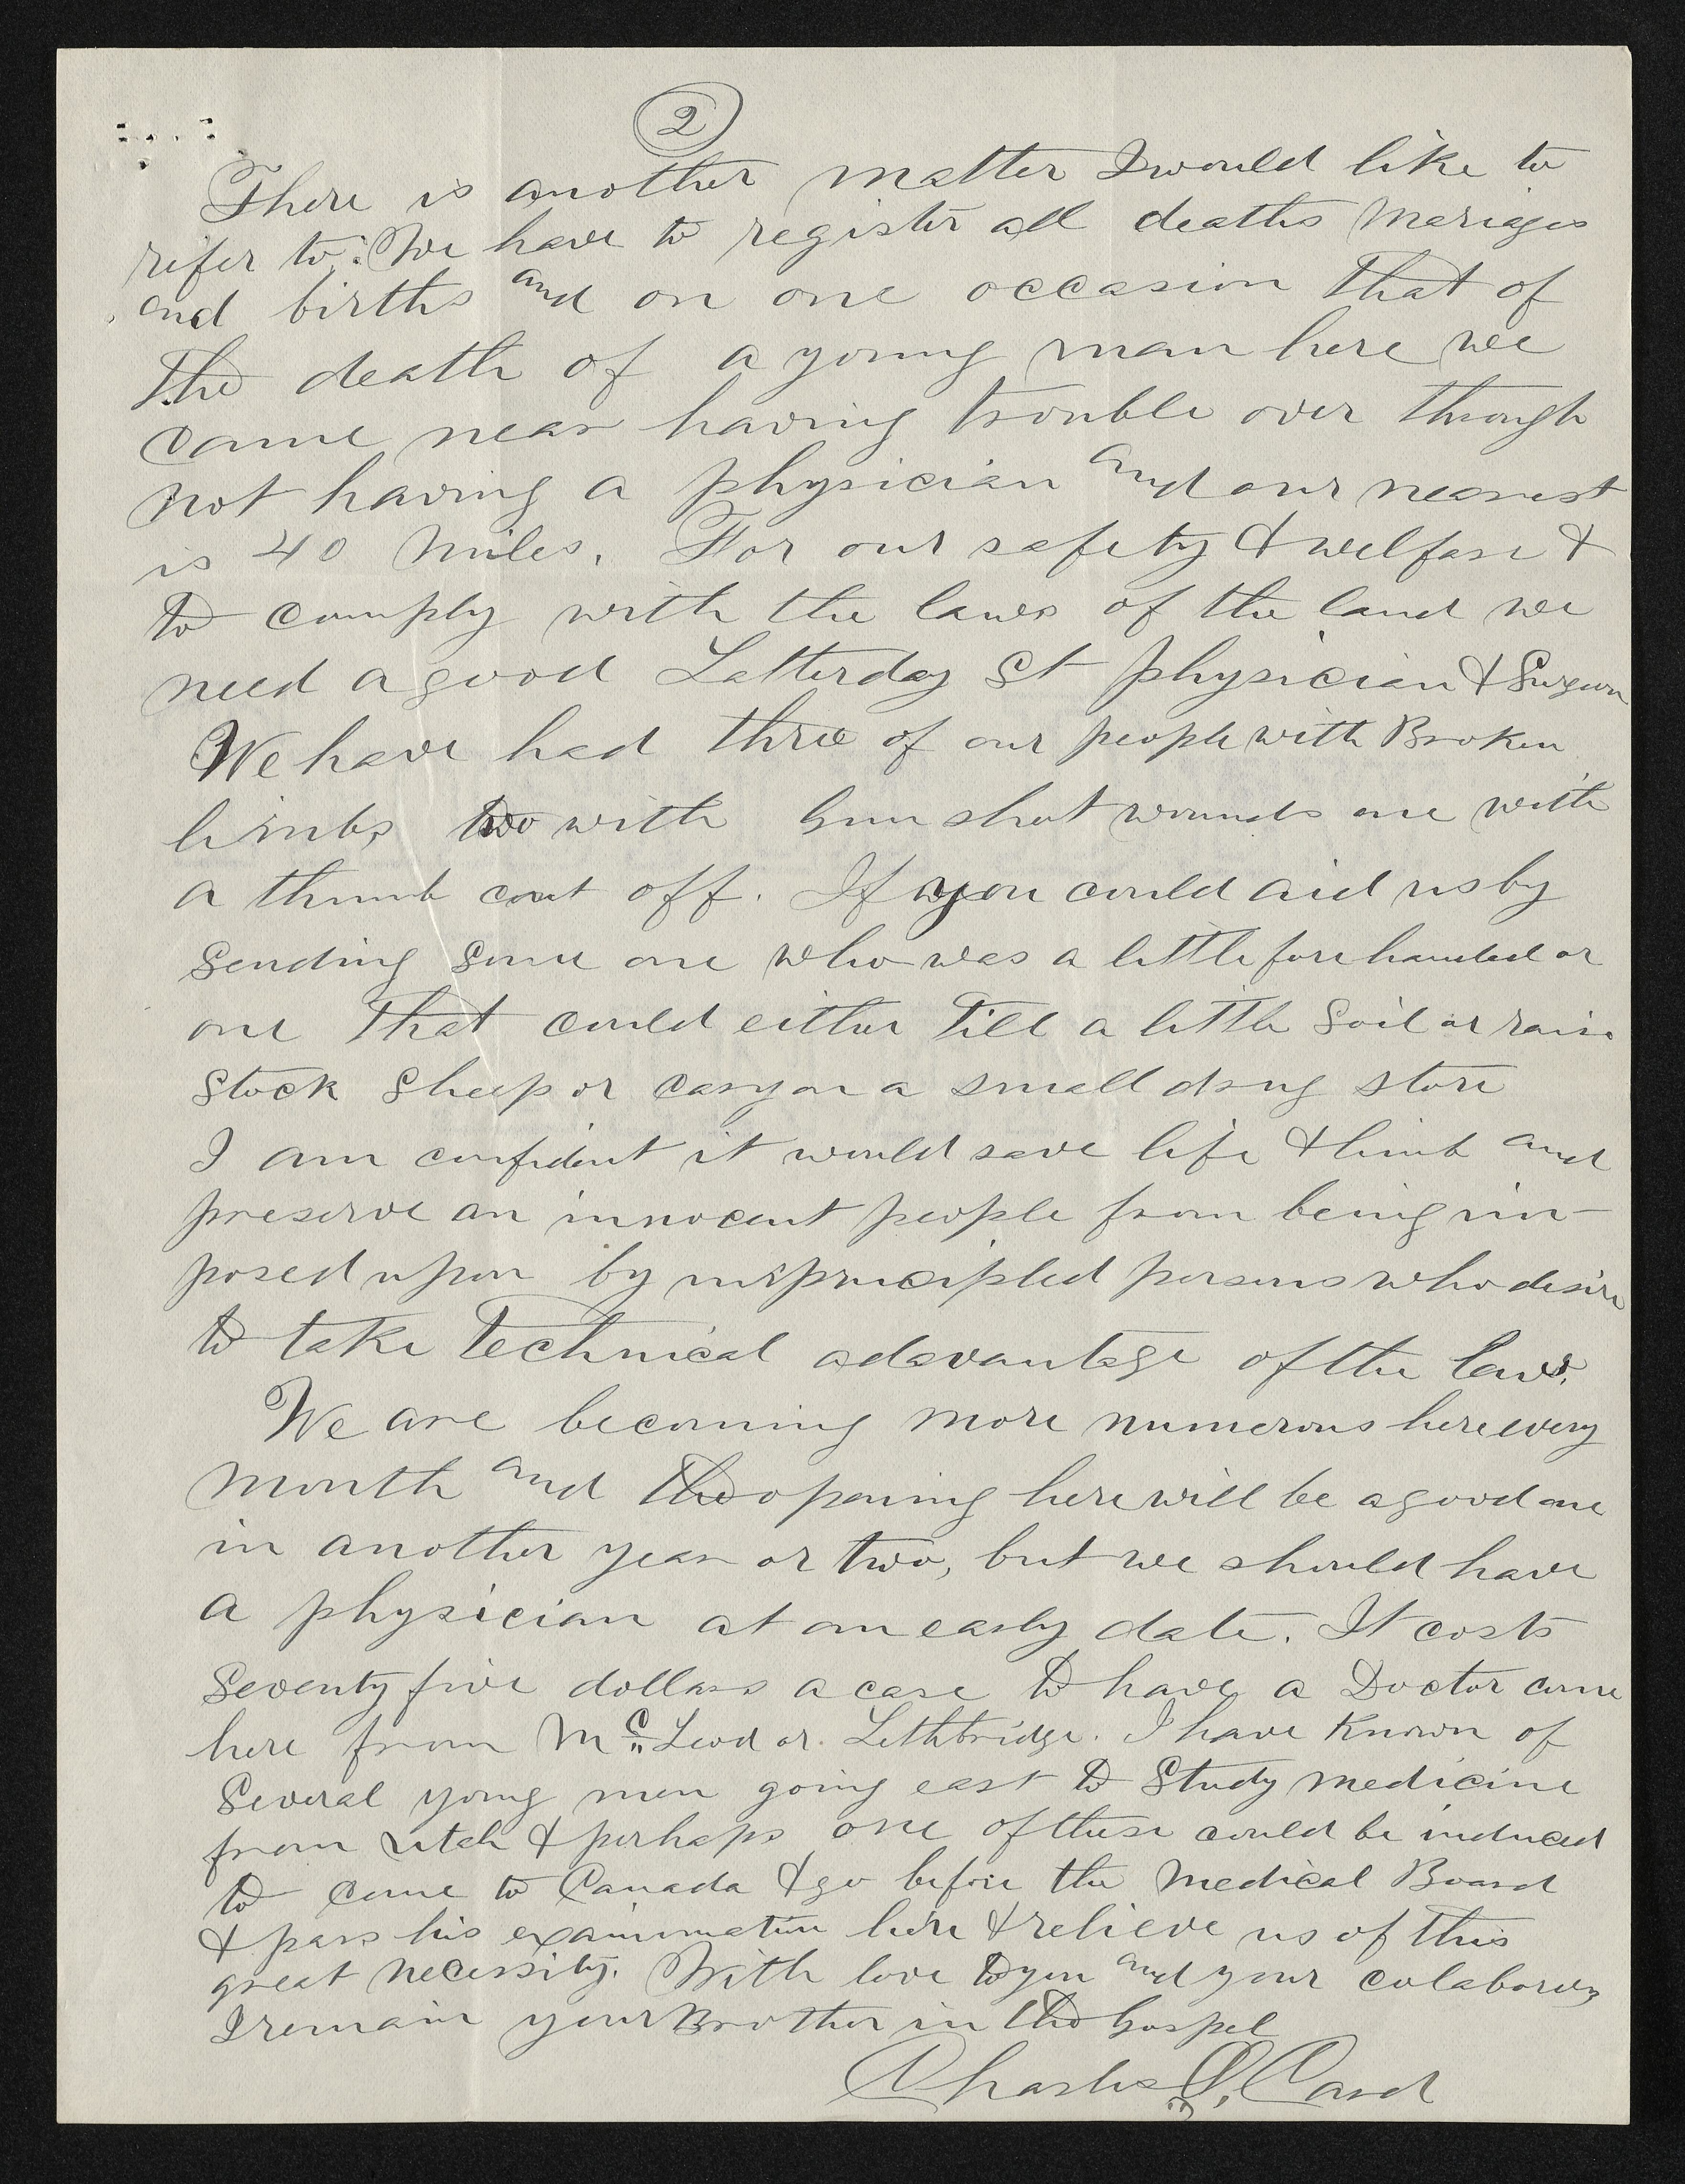 2
There is another matter I would like to
rifer to: We have to register all deaths Mariages
and births and on one occasion that of
the death of a young man here we
came near having trouble over through
not having a physician and our nearest
is 40 Miles. For our safety & welfare &
to comply with the laws of the land we
need a good Latterday St physician & Surgeon
We have had three of our people with Broken
limbs two with Gun shot wounds one with
a thumb cut off. If you could aid us by
Sending Some one who was a little fore handed or
one that could either Till a little Soil or raise
Stock Sheep or carry on a small drug store
I am confident it would save life & limb and
preserve an innocent people from being im-
posed upon by unprincipled persons who desire
to take Technical adavantage of the laws.
We are becoming more numerous here every
month and the opening here will be a good one
in another year or two, but we should have
a physician at an early date. It costs
Seventy five dollars a case to have a Doctor come
here from McLeod or Lethbridge. I have Known of
Several young men going east to Study medicine
from Utah & perhaps one of these could be induced
to come to Canada & go before the Medical Board
& pass his examination here & relieve us of this
great necessity. With love to you and your colaborers
I remain your Brother in the Gospel
Charles O. Card